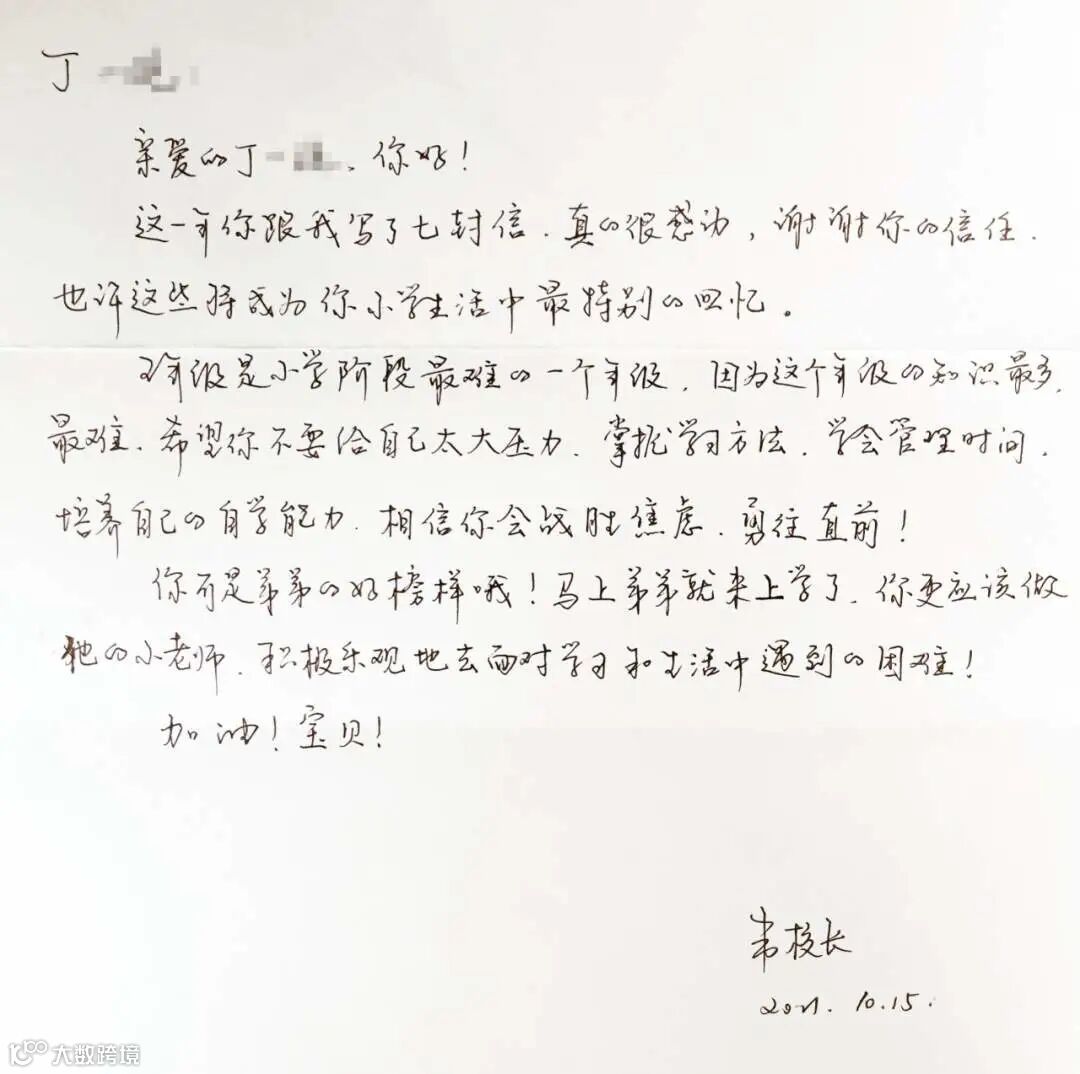 丁一
亲爱的丁一、你好！
这一年你跟我写了七封信.真的很感动,谢谢你的信任.
也许这些将成为你小学生活中最特别的回忆。
五年级是小学阶段最难的一个年级,因为这个年级的知识最多,
最难、希望你不要给自己太大压力、掌握学习方法、学会管理时间、
培养自己的自学能力、相信你会战胜焦虑、勇往直前！
你可是弟弟的好榜样哦！马上弟弟就来上学了、你更应该做
他的小老师、积极乐观地去面对学习和生活中遇到的困难！
加油！宝贝！
校长
2021.10.15.
大数跨境